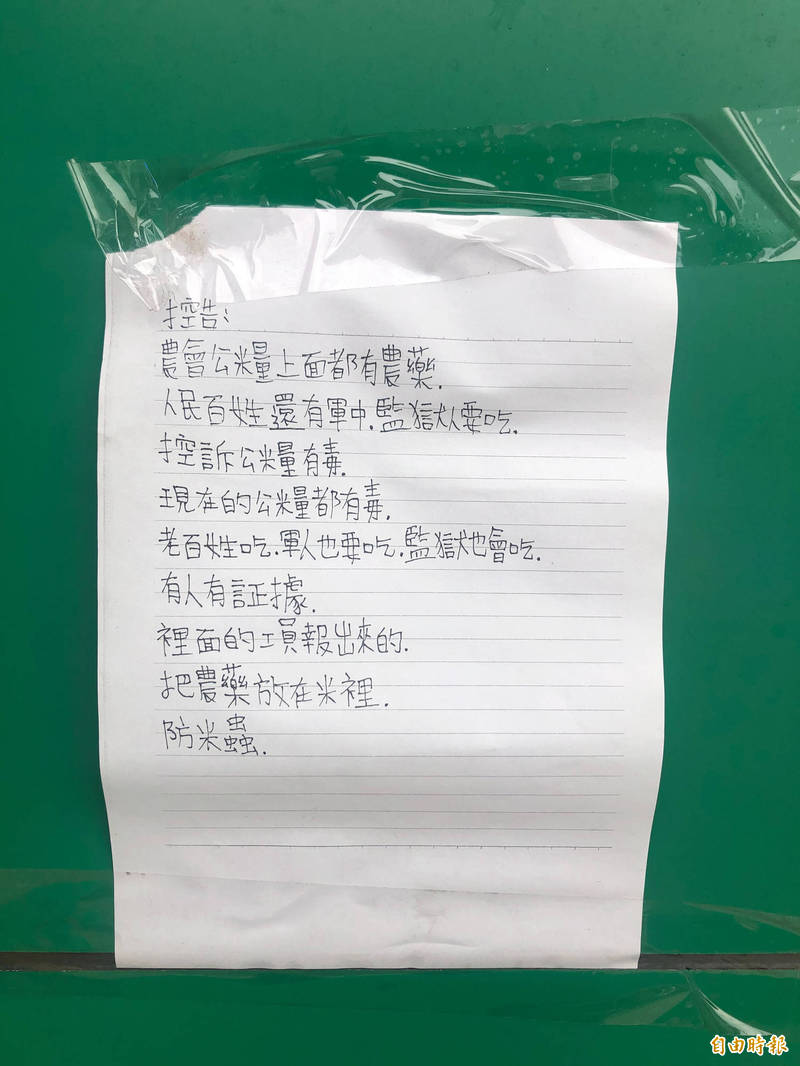 控告:
農會公米量上面都有農藥.
人民百姓還有軍中.監獄人要吃.
控訴公米量有毒.
現在的公米量都有毒.
老百姓吃.軍人也要吃.監獄也會吃.
有人有証據.
裡面的工員報出來的.
把農藥放在米裡.
防米蟲.
自由時報